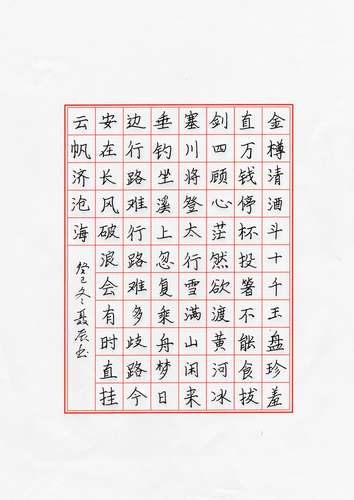 金樽清酒斗十千玉盘珍羞
直万钱停杯投箸不能食拔
剑四顾心茫然欲渡黄河冰
塞川将登太行雪满山闲来
垂钓坐溪上忽复乘舟梦日
边行路难行路难多歧路今
安在长风破浪会有时直挂
云帆济沧海
癸巳冬聂辰书